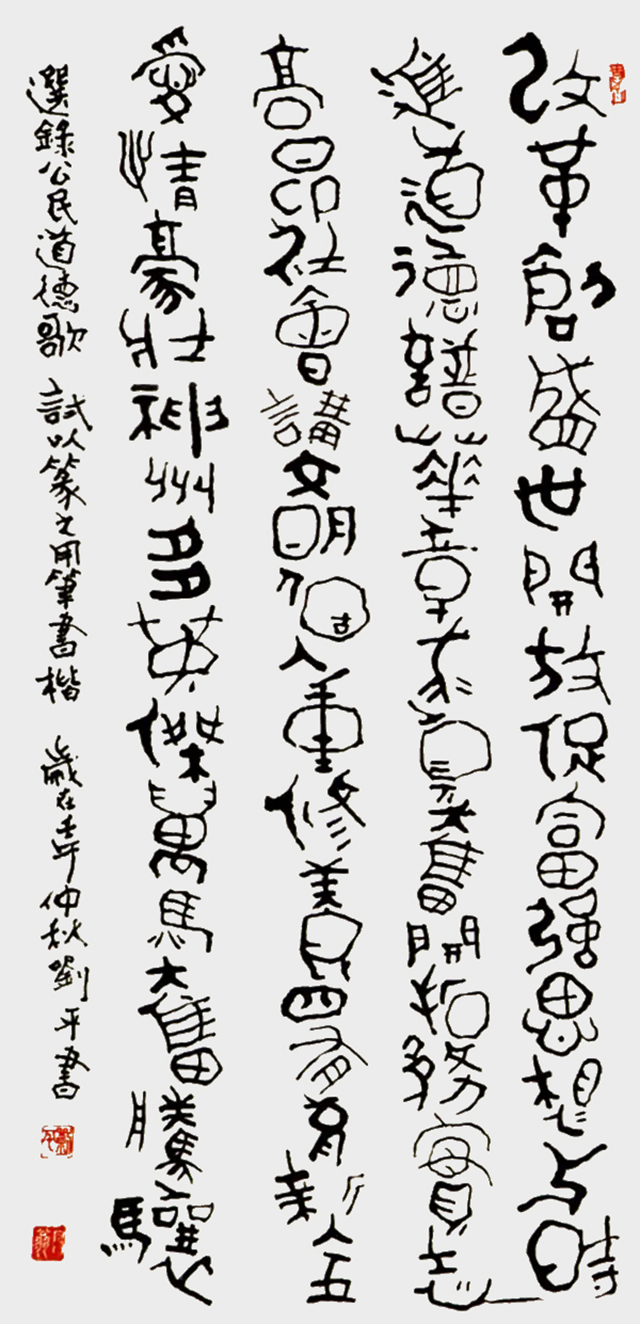 改革創盛世開放促富強思想与時
進道德譜華章奮開拓務實志
高品社會講文明個人重修養四有育新人五
愛情豪壯神州多英傑萬馬奮騰驤
選錄公民道德歌 試以篆之用筆書楷 歲在壬午仲秋劉平書